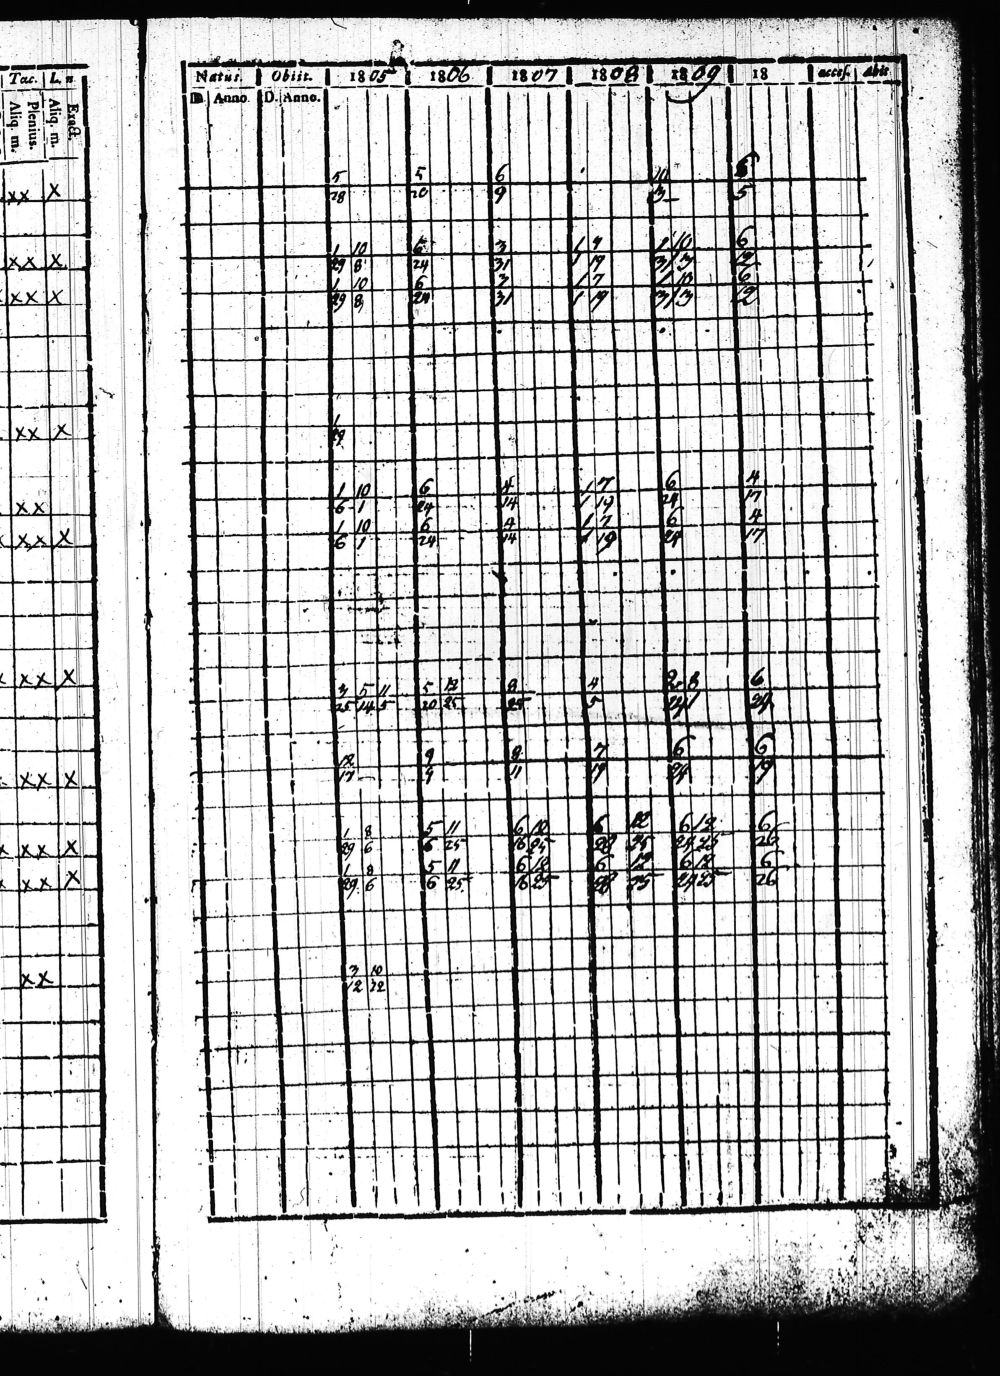 Tac. L. n
Aliq. m. Plenius. Aliq. m. Exact.
Natus. Obiit. 1805 1806 1807 1808 1809 18 access. Abit
D. Anno. D. Anno.
5 5 6 10 6
xx x 28 20 9 3 5
1 10 6 3 1 7 1 10 6
xx x 29 8 24 31 1 19 31 3 12
1 10 6 3 1 7 1 10 6
xxx x 29 8 24 31 1 19 31 3 12
1
xx x 29
1 10 6 4 1 7 6 4
xx 6 1 24 14 1 19 24 17
1 10 6 4 1 7 6 4
x xx x 6 1 24 14 1 19 24 17
x xx x 3 5 11 5 12 8 4 2 8 6
25 14 5 20 25 25 5 24 1 24
12 9 8 7 6 6
xx x 17 9 11 19 24 19
1 8 5 11 6 12 6 12 6 12 6
x xx x 29 6 6 25 16 25 28 25 24 25 26
1 8 5 11 6 12 6 12 6 12 6
x xx x 29 6 6 25 16 25 28 25 24 25 26
xx 3 10
12 12